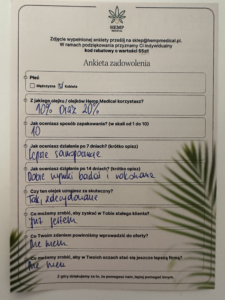 HEMP
MEDICAL
Zdjęcie wypełnionej ankiety prześlij na sklep@hempmedical.pl
W ramach podziękowania przyznamy Ci indywidualny
kod rabatowy o wartości 55zł
Ankieta zadowolenia
Płeć
Mężczyzna Kobieta
Z jakiego olejku / olejków Hemp Medical korzystasz?
10% oraz 20%
Jak oceniasz sposób zapakowania? (w skali od 1 do 10)
10
Jak oceniasz działanie po 7 dniach? (krótki opis)
Lepsze samopoczucie
Jak oceniasz działanie po 14 dniach? (krótki opis)
Dobre wyniki badań i
Czy ten olejek uznajesz za skuteczny?
Tak, zdecydowanie
Co możemy zrobić, aby zyskać w Tobie stałego klienta?
Już jestem
Co Twoim zdaniem powinniśmy wprowadzić do oferty?
Nie wiem
Co możemy zrobić, aby w Twoich oczach stać się jeszcze lepszą firmą?
Nie wiem